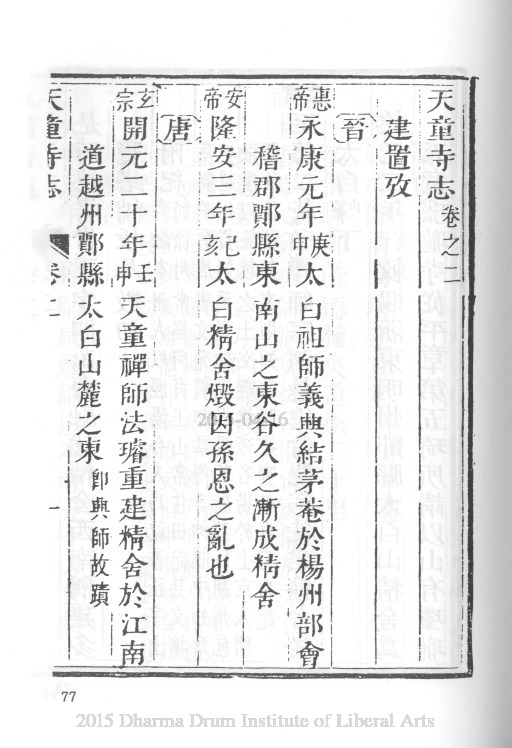 天童寺志卷之二
建置攷
晉
惠帝永康元年庚申太白祖師義興結茅菴於楊州部會
稽郡鄮縣東南山之東谷久之漸成精舍
安帝隆安三年己亥太白精舍燬因孫恩之亂也
唐
玄宗開元二十年壬申天童禪師法璿重建精舍於江南
道越州鄮縣太白山麓之東即興師故蹟
天童寺志 卷二 一
77
2015-04-16
2015 Dharma Drum Institute of Liberal Arts